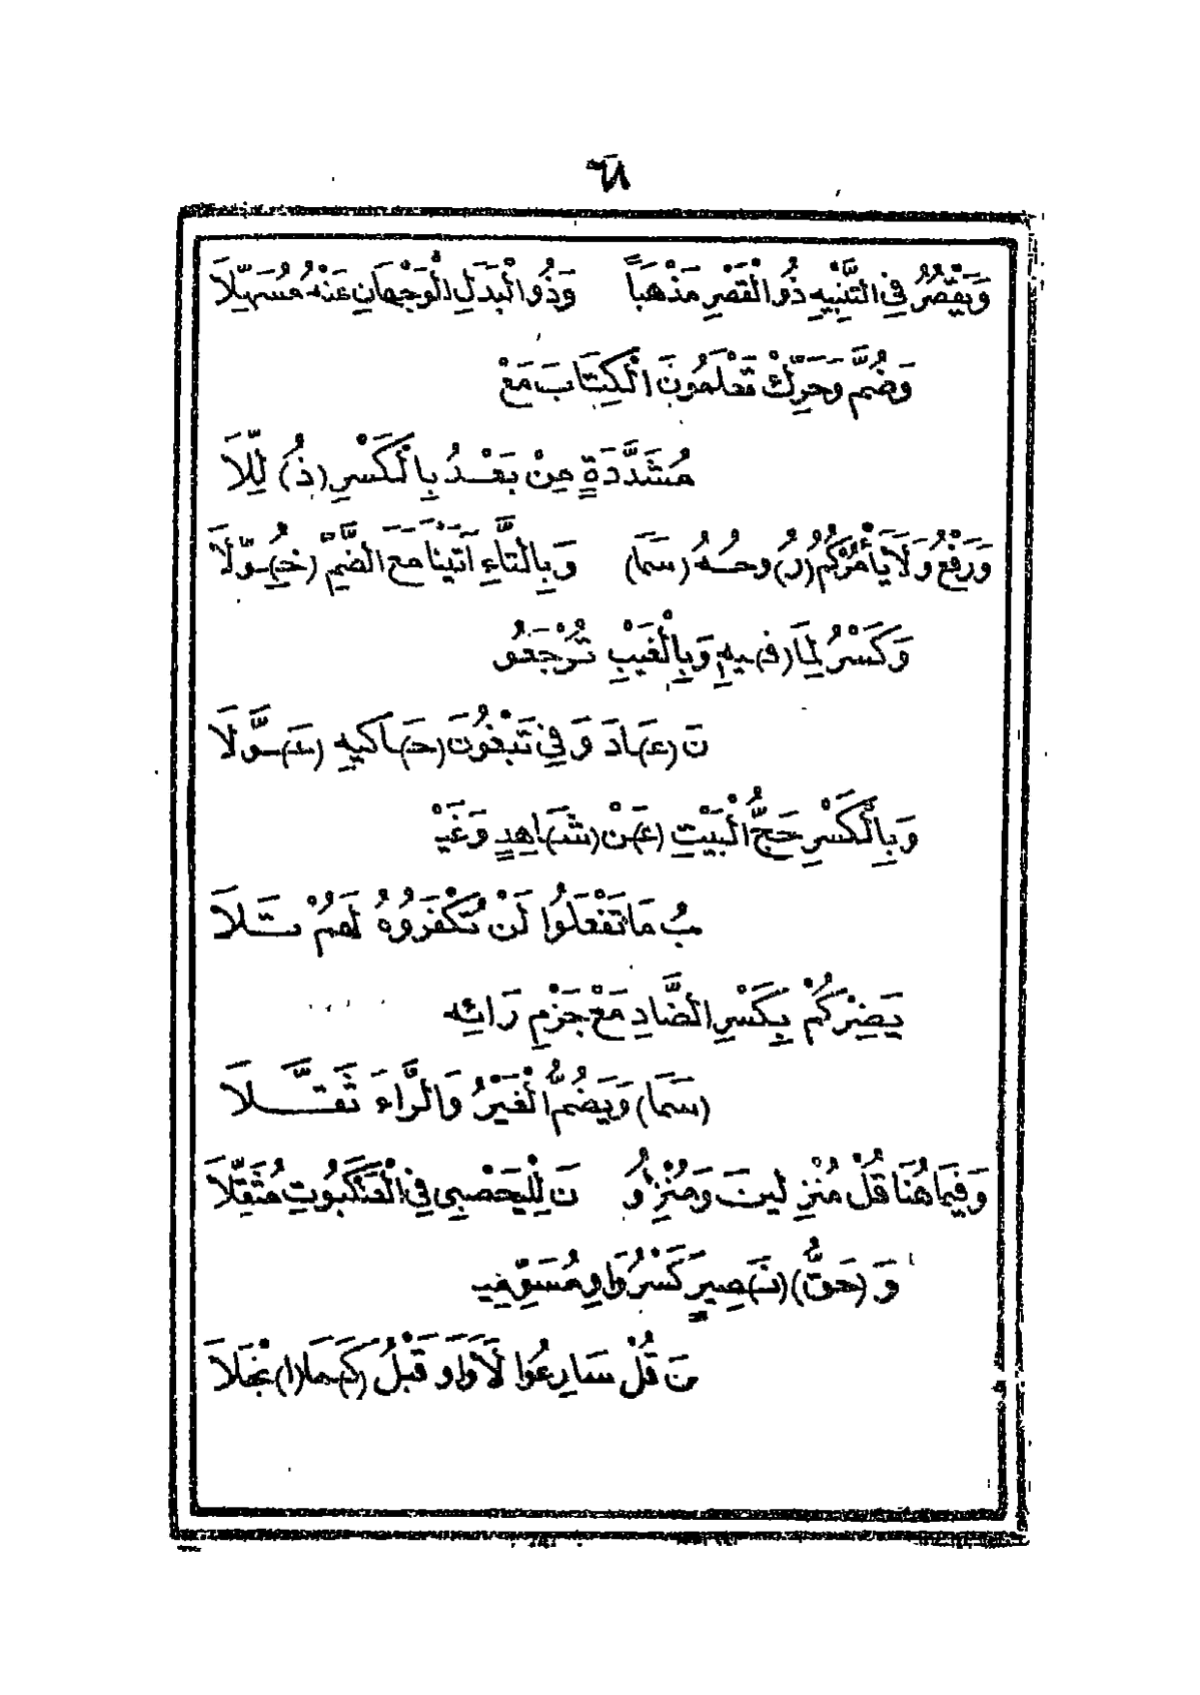 ٦٨
وَيَقْصُرُ فِي التَّنْبِيهِ ذُو الْقَصْرِ مَذْهَباً وَذُو الْبَدَلِ الْوَجْهَانِ عَنْهُ مُسَهِّلَا
وَضُمَّ وَحَرِّكْ تَعْلَمُونَ الْكِتَابَ مَعْ
مُشَدَّدَةٍ مِنْ بَعْدُ بِالْكَسْرِ (ذُ) لِّلَا
وَرَفْعُ وَلَا يَأْمُرْكُمُ (رُ) وحُهُ (سَمَا) وَبِالتَّاءِ آتَيْنَا مَعَ الضَّمِّ (خُـ) ـوِّلَا
وَكَسْرُ لِمَا (فِـ) ـيهِ وَبِالْغَيْبِ تُرْجَعُو
نَ (عَـ) ـادَ وَفِي تَبْغُونَ (حَـ) ـاكِيهِ (عَـ) ـوَّلَا
وَبِالْكَسْرِ حَجُّ الْبَيْتِ (عَـ) ـنْ (شَـ) ـاهِدٍ وَغَيْـ
ـبُ مَا تَفْعَلُوا لَنْ تُكْفَرُوهُ لَهُمْ تَـلَا
يَضِرْكُمْ بِكَسْرِ الضَّادِ مَعْ جَزْمِ رَائِهِ
(سَمَا) وَيَضُمُّ الْغَيْرُ وَالرَّاءَ ثَقَّـلَا
وَفِيمَا هُنَا قُلْ مُنْزِلِينَ وَمُنْزِلُو نَ لِلْيَحْصُبِي فِي الْعَنْكَبُوتِ مُثَقِّلَا
وَ (حَقُّ) (نَـ) ـصِيرٍ كَسْرُ وَاوِ مُسَوِّمِيـ
ـنَ قُلْ سَارِعُوا لَا وَاوَ قَبْلُ (كَـ) ـمَا (ا) نْجَلَا